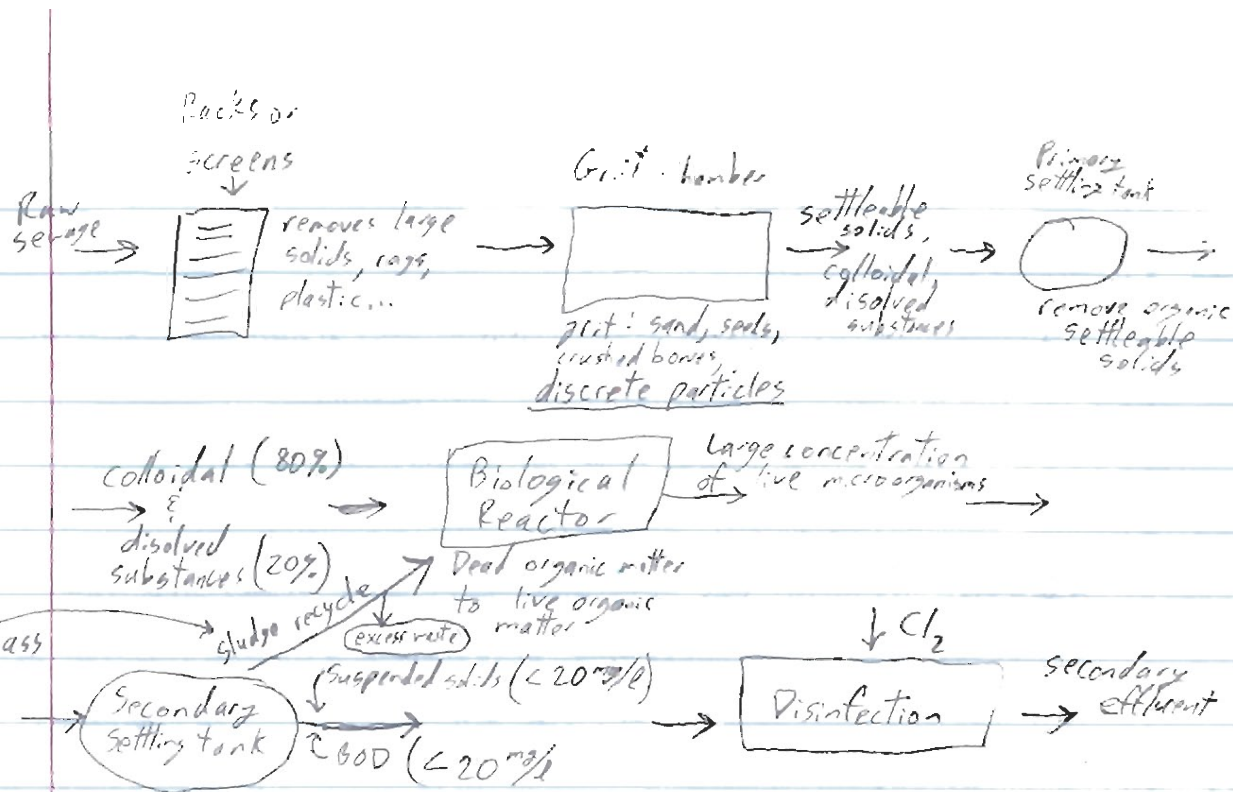 Racks or
screens
Raw
sewage
removes large
solids, rags,
plastic...
Grit chamber
grit: sand, seeds,
crushed bones,
discrete particles
settleable
solids,
colloidal,
disolved
substances
Primary
settling tank
remove organic
settleable
solids
colloidal (80%)
&
disolved
substances (20%)
Biological
Reactor
Large concentration
of live microorganisms
Dead organic matter
to live organic
matter
sludge recycle
ass
Secondary
settling tank
suspended solids (<20 mg/l)
BOD (<20 mg/l
Cl2
Disinfection
secondary
effluent